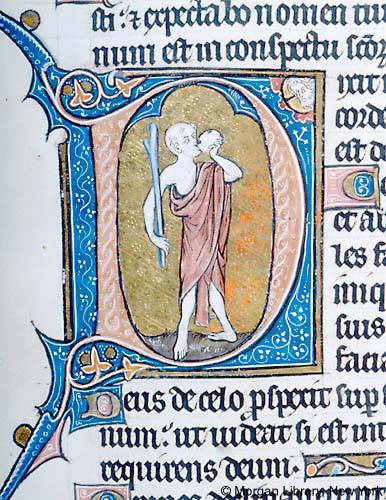 sti: ⁊ expectabo nomen tuu
num est in conspectu sco
D ixit i
corde
est de
C
et ab
les fa
iniq
suis
facia
Deus de celo pspexit sup f
num: ut uideat si est int
requirens deum.
© Morgan Library, New York